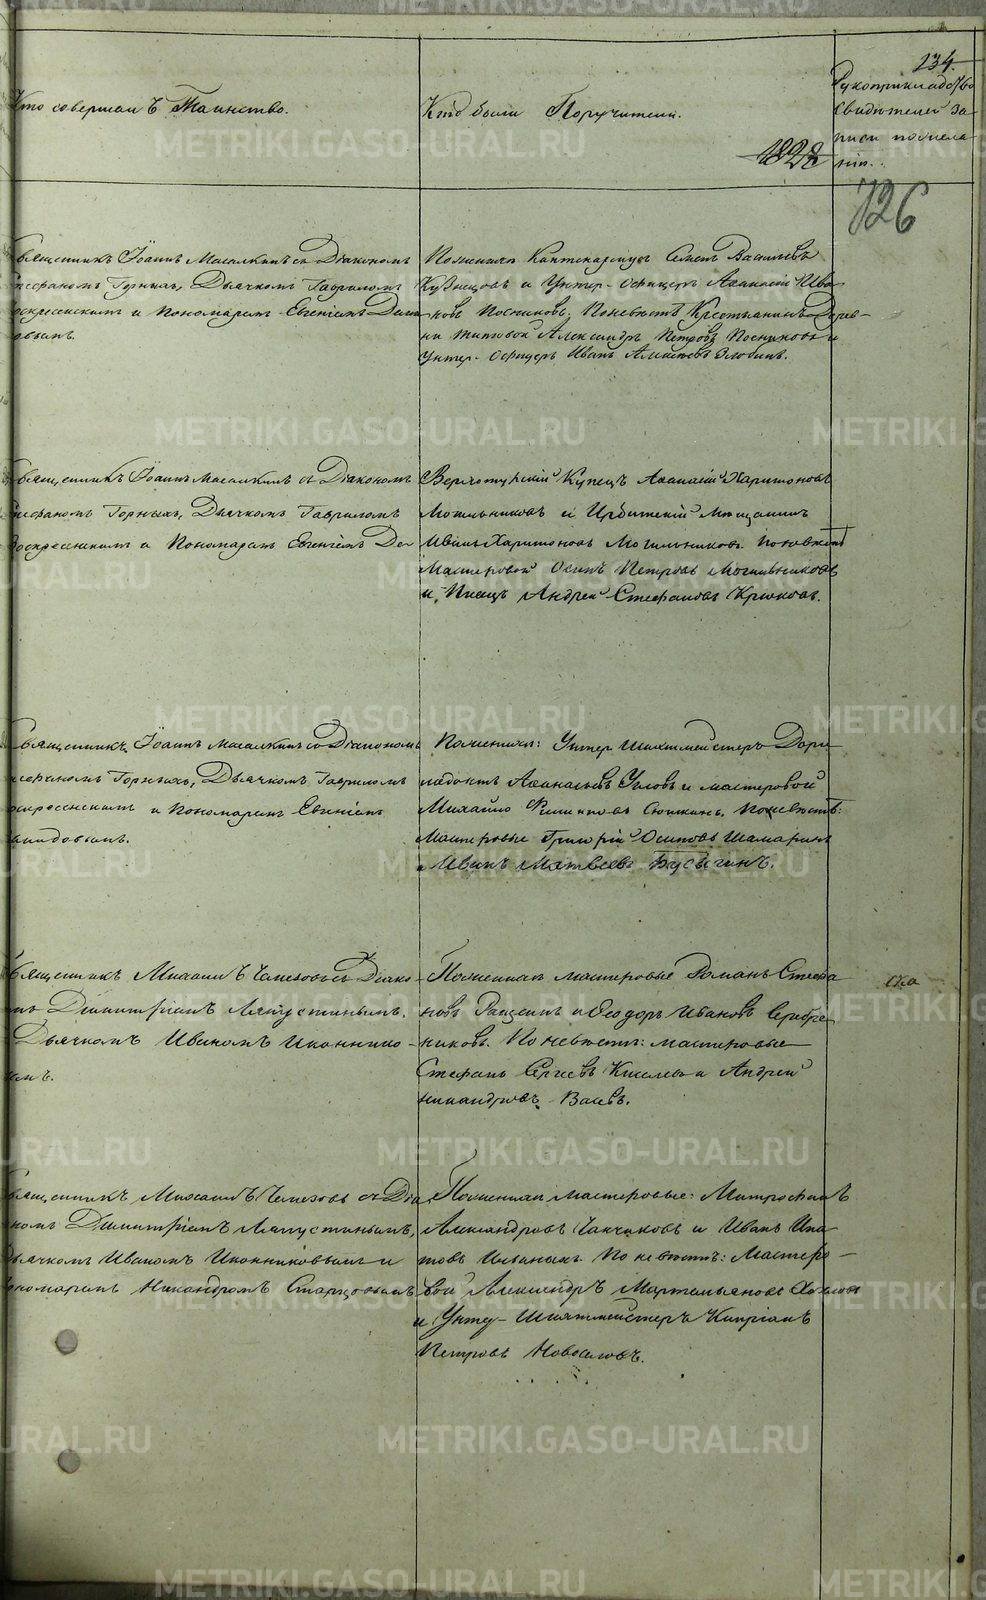 234.
Кто совершалъ Таинство.
Кто были Поручители.
Рукоприкладство
свидѣтелей за-
писи по жела-
нію.
1828
726
Священникъ Іоаннъ съ Діакономъ
Стефаномъ Горныхъ, Дьячкомъ Гавриломъ
Воскресенскимъ и Пономаремъ Евгеніемъ
По женихѣ Семенъ Васильевъ
Кузнецовъ и Унтер-Офицеръ Аѳанасій Ива-
новъ Посниковъ. По невѣстѣ Крестьянинъ Дерев-
ни Титовой Александръ Петровъ Посниковъ и
Унтер-Офицеръ Иванъ Злобинъ.
Священникъ Іоаннъ съ Діакономъ
Стефаномъ Горныхъ, Дьячкомъ Гавриломъ
Воскресенскимъ и Пономаремъ Евгеніемъ
Верхотурскій Купецъ Аѳанасій Харитоновъ
Могильниковъ и Ирбитскій Мѣщанинъ
Иванъ Харитоновъ Могильниковъ. По невѣстѣ
Мастеровой Осипъ Петровъ Могильниковъ
и Писецъ Андрей Стефановъ Крюковъ.
Священникъ Іоаннъ со Діакономъ
Стефаномъ Горныхъ, Дьячкомъ Гавриломъ
Воскресенскимъ и Пономаремъ Евгеніемъ
По женихѣ: Унтер Шихтмейстеръ Дори-
медонтъ Аѳанасьевъ и мастеровой
Михайло Филиповъ По невѣстѣ:
Мастеровые Григорій Осиповъ Шамаринъ
и Иванъ Матвеевъ Бусыгинъ.
Священникъ Михаилъ съ Діако-
номъ Димитріемъ Лапустинымъ,
Дьячкомъ Иваномъ Иконнико-
вымъ.
По женихѣ мастеровые Романъ Стефа-
новъ и Ѳеодоръ Ивановъ Серебре-
никовъ. По невѣстѣ: мастеровые
Стефанъ Сергеевъ Киселевъ и Андрей
Никандровъ Ваевъ.
Священникъ Михаилъ съ Діа-
кономъ Димитріемъ Лапустинымъ,
Дьячкомъ Иваномъ Иконниковымъ и
Пономаремъ Никандромъ Старцовымъ
По женихѣ мастеровые: Митрофанъ
Александровъ и Иванъ Ипа-
товъ Ильиныхъ. По невѣстѣ: Мастеро-
вой Александръ Мартемьяновъ
и Унтер-Шихтмейстеръ Кипріанъ
Петровъ Новоселовъ.
METRIKI.GASO-URAL.RU